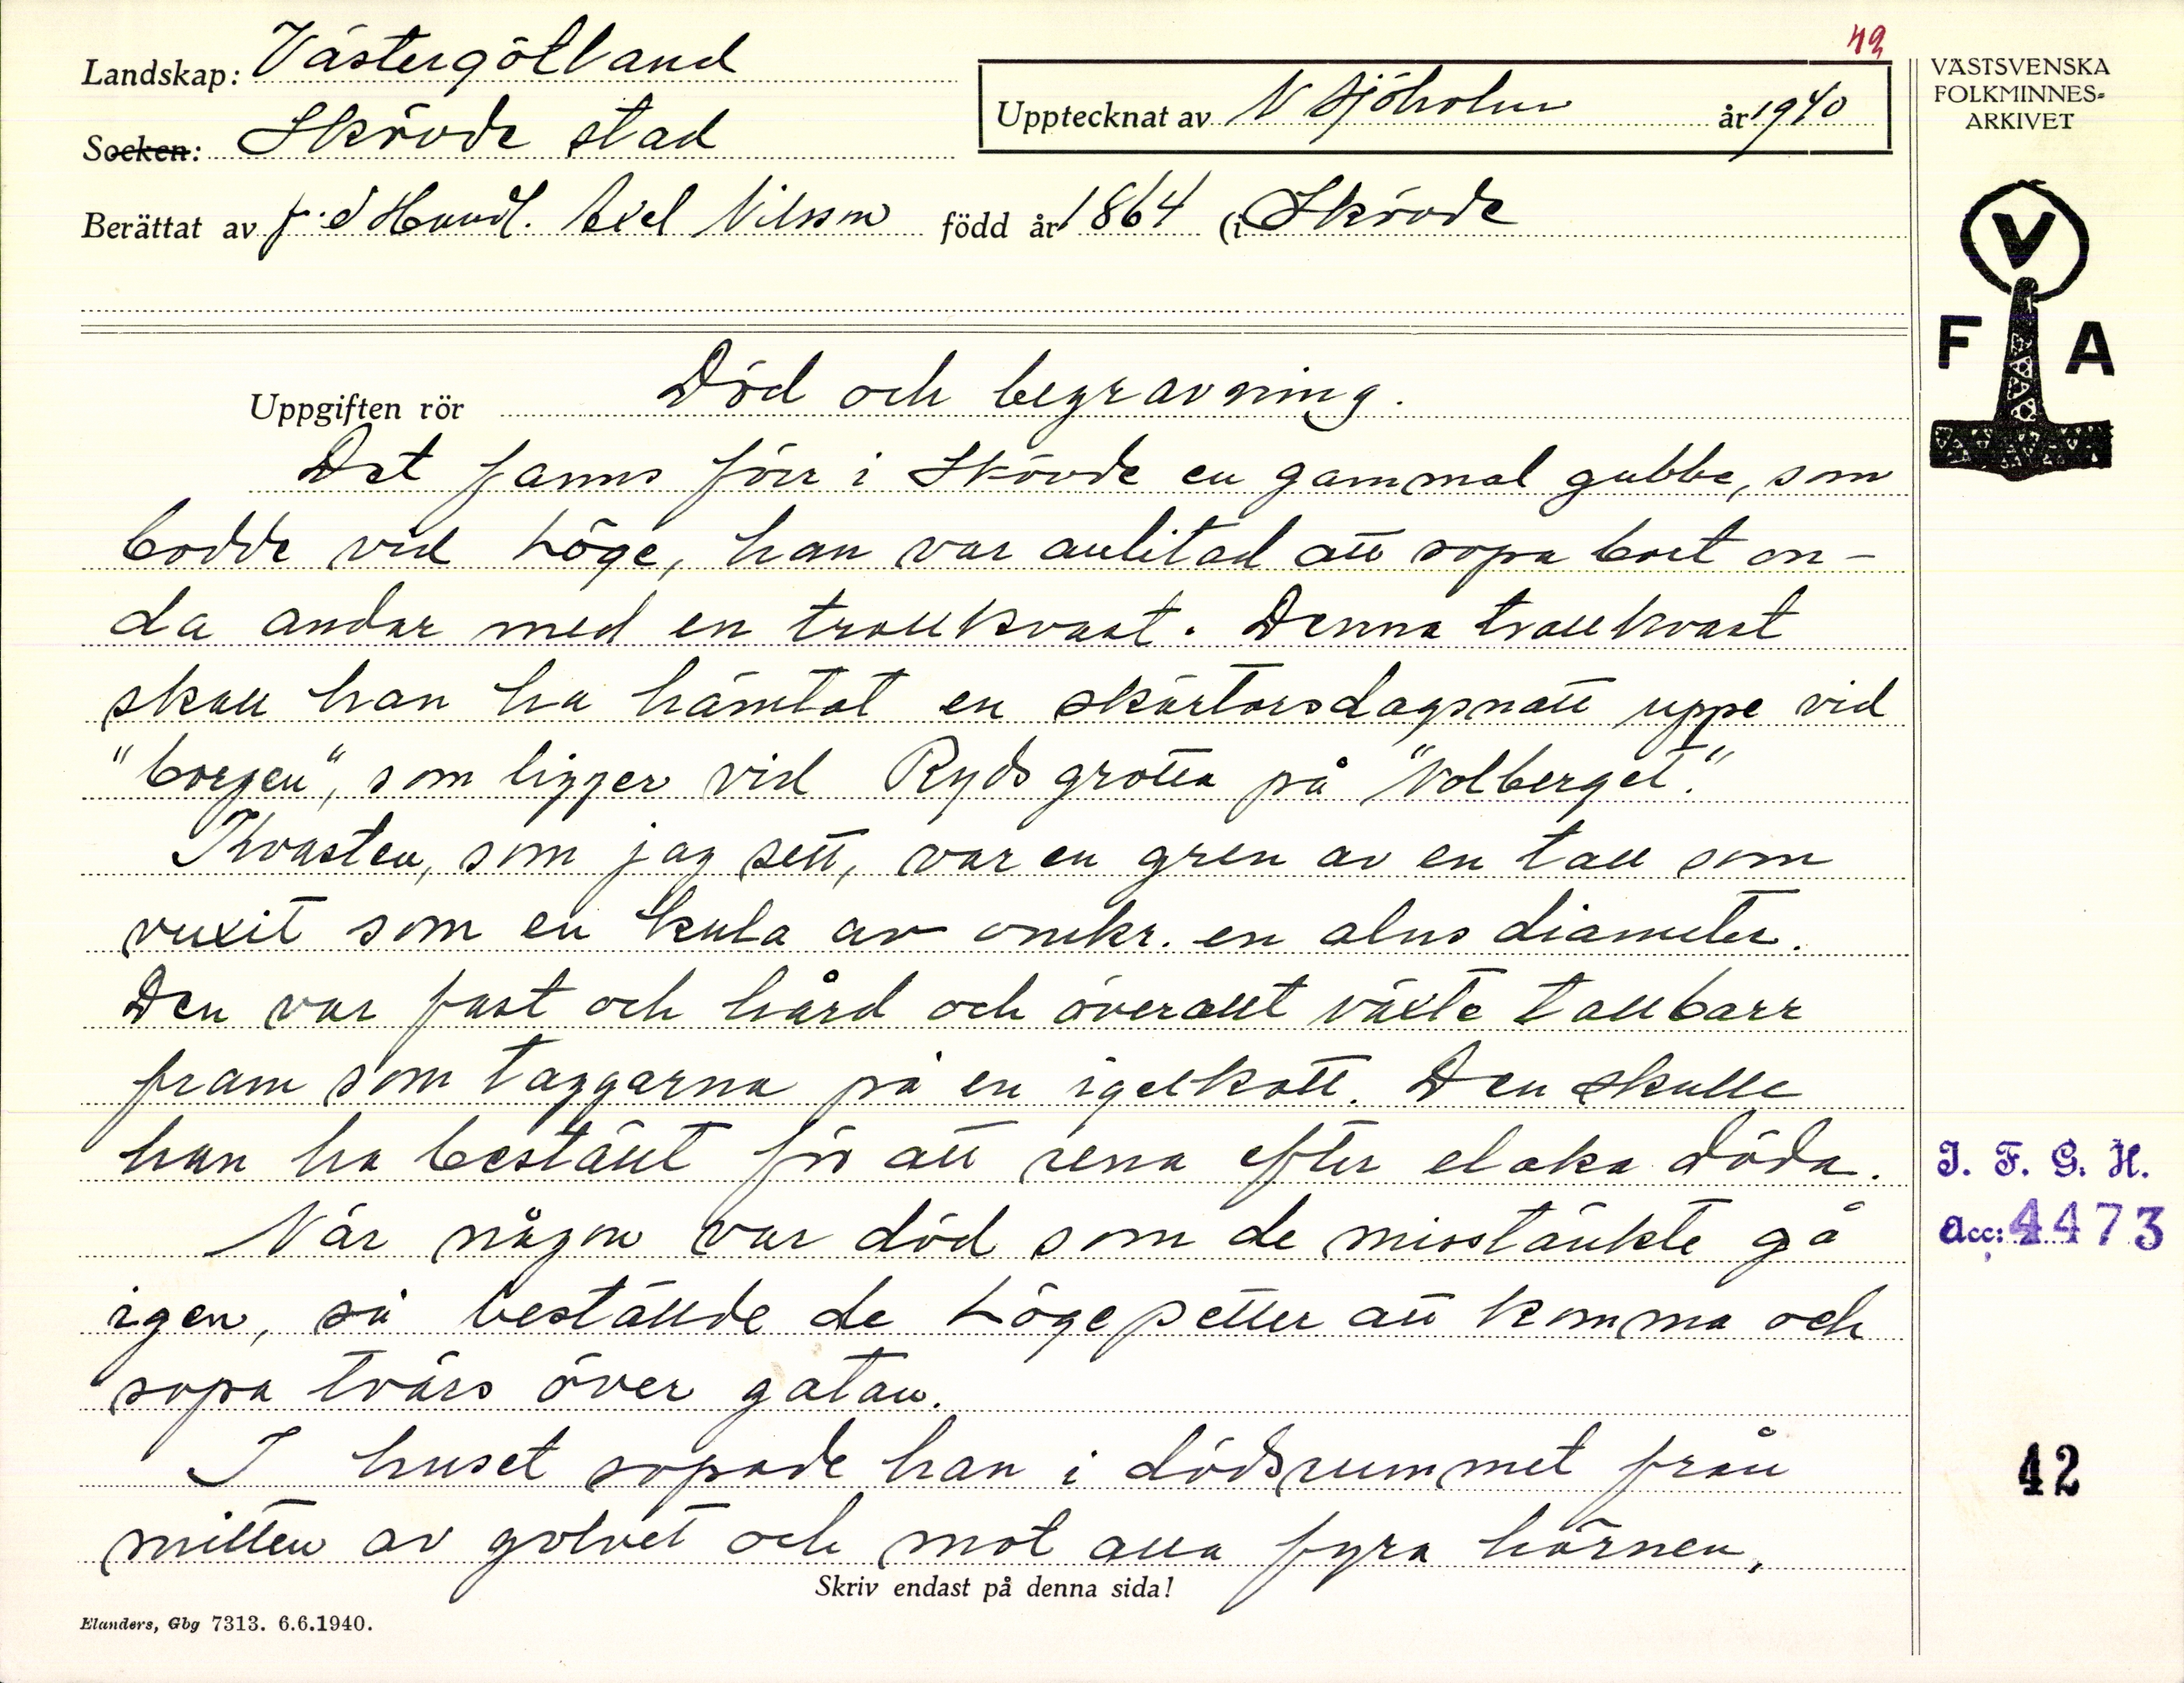 49
Landskap: Västergötland
Socken: Skövde stad
Upptecknat av N Sjöholm år 1940
Berättat av f.d Handl. Axel Nilsson född år 1864 (i Skövde
VÄSTSVENSKA
FOLKMINNES-
ARKIVET
V
F A
Uppgiften rör Död och begravning.
Det fanns förr i Skövde en gammal gubbe, som
bodde vid Löge, han var anlitad att sopa bort on-
da andar med en trollkvast. Denna trollkvast
skall han ha hämtat en skärtorsdagsnatt uppe vid
"borgen", som ligger vid Ryds grotta på "Volberget".
Kvasten, som jag sett, var en gren av en tall som
vuxit som en kula av omkr. en alns diameter.
Den var fast och hård och överallt växte tallbarr
fram som taggarna på en igelkott. Den skulle
han ha beställt för att rena efter elaka döda.
När någon var död som de misstänkte gå
igen, så beställde de Lögepetter att komma och
sopa tvärs över gatan.
I huset sopade han i dödsrummet från
mitten av golvet och mot alla fyra hörnen,
Skriv endast på denna sida!
Elanders, Gbg 7313. 6.6.1940.
I. F. G. H.
Acc: 4473
42